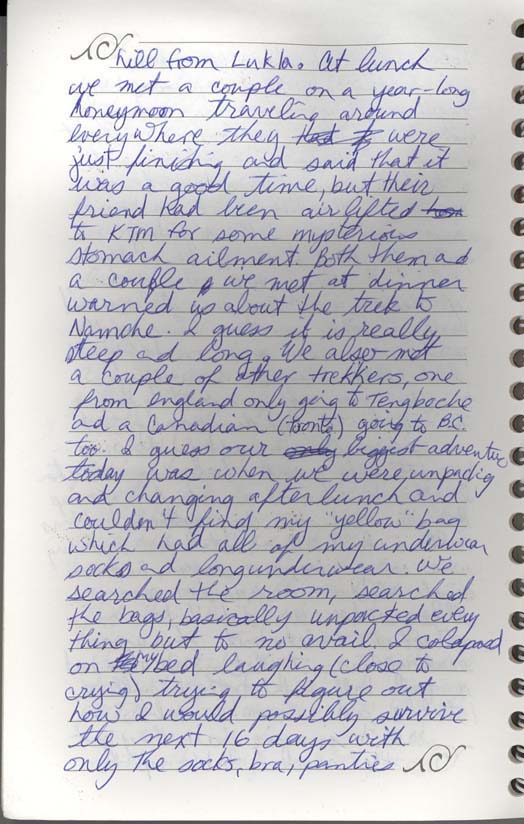 hill from Lukla. At lunch
we met a couple on a year-long
honeymoon traveling around
everywhere they were
just finishing and said that it
was a good time, but their
friend had been airlifted
to KTM for some mysterious
stomach ailment. Both them and
a couple we met at dinner
warned us about the trek to
Namche. I guess it is really
steep and long. We also met
a couple of other trekkers, one
from england only going to Tengboche
and a Canadian (toronto) going to B.C.
too. I guess our biggest adventure
today was when we were unpacking
and changing after lunch and
couldn't find my "yellow" bag
which had all of my underwear
socks and longunderwear. We
searched the room, searched
the bags, basically unpacked every
thing but to no avail. I colapsed
on my bed laughing (close to
crying) trying to figure out
how I would possibly survive
the next 16 days with
only the socks, bra, panties